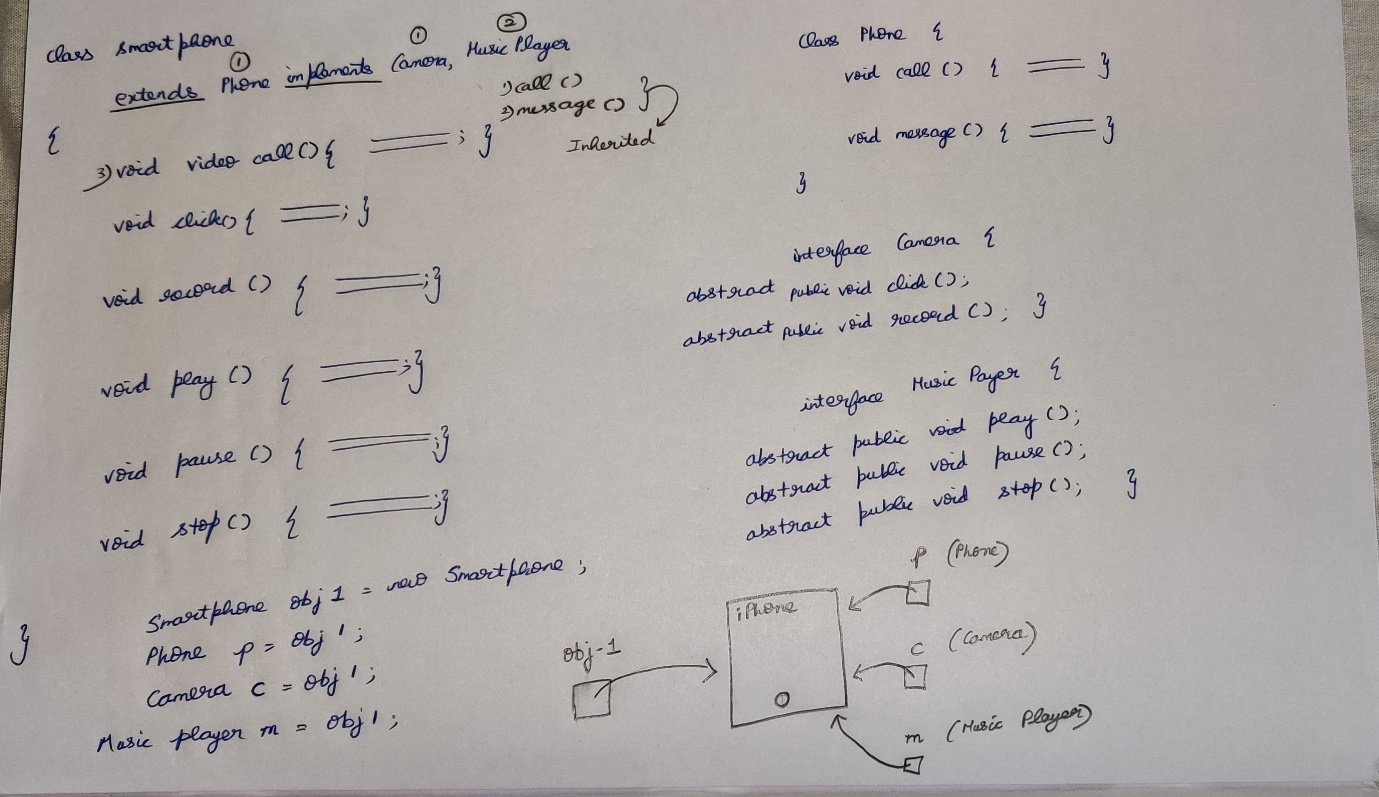 ① ②
class smartphone
①
extends Phone implements Camera, Music Player
1) call ()
2) message () }
Inherited
{
3) void video call () { ; }
void click() { ; }
void record () { ; }
void play () { ; }
void pause () { ; }
void stop () { ; }
Smartphone obj 1 = new Smartphone ;
}
Phone p = obj 1 ;
Camera c = obj 1 ;
Music player m = obj 1 ;
Class Phone {
void call () { }
void message () { }
}
interface Camera {
abstract public void click ();
abstract public void record (); }
interface Music Payer {
abstract public void play ();
abstract public void pause ();
abstract public void stop (); }
obj-1
iPhone
p (Phone)
c (Camera)
m (Music Player)